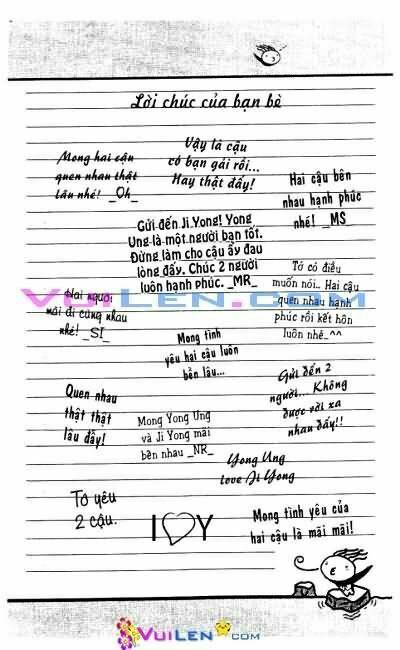 ViLEN.COM
Lời chúc của bạn bè
Mong hai cậu
quen nhau thật
lâu nhé! _Oh_
Vậy là cậu
có bạn gái rồi...
Hay thật đấy!
Hai cậu bên
nhau hạnh phúc
nhé! _MS
Gửi đến Ji Yong! Yong
Ung là một người bạn tốt.
Đừng làm cho cậu ấy đau
lòng đấy. Chúc 2 người
luôn hạnh phúc. _MR_
Tớ có điều
muốn nói.. Hai cậu
quen nhau hạnh
phúc rồi kết hôn
luôn nhé.^^
Hai người
mãi đi cùng nhau
nhé! _SI_
VUILEN.COM
Mong tình
yêu hai cậu luôn
bền lâu...
Gửi đến 2
người... Không
được rời xa
nhau đấy!!
Quen nhau
thật thật
lâu đấy!
Mong Yong Ung
và Ji Yong mãi
bên nhau _NR_
Yong Ung
love Ji Yong
Tớ yêu
2 cậu.
I♡Y
Mong tình yêu của
hai cậu là mãi mãi!
VUILEN.COM